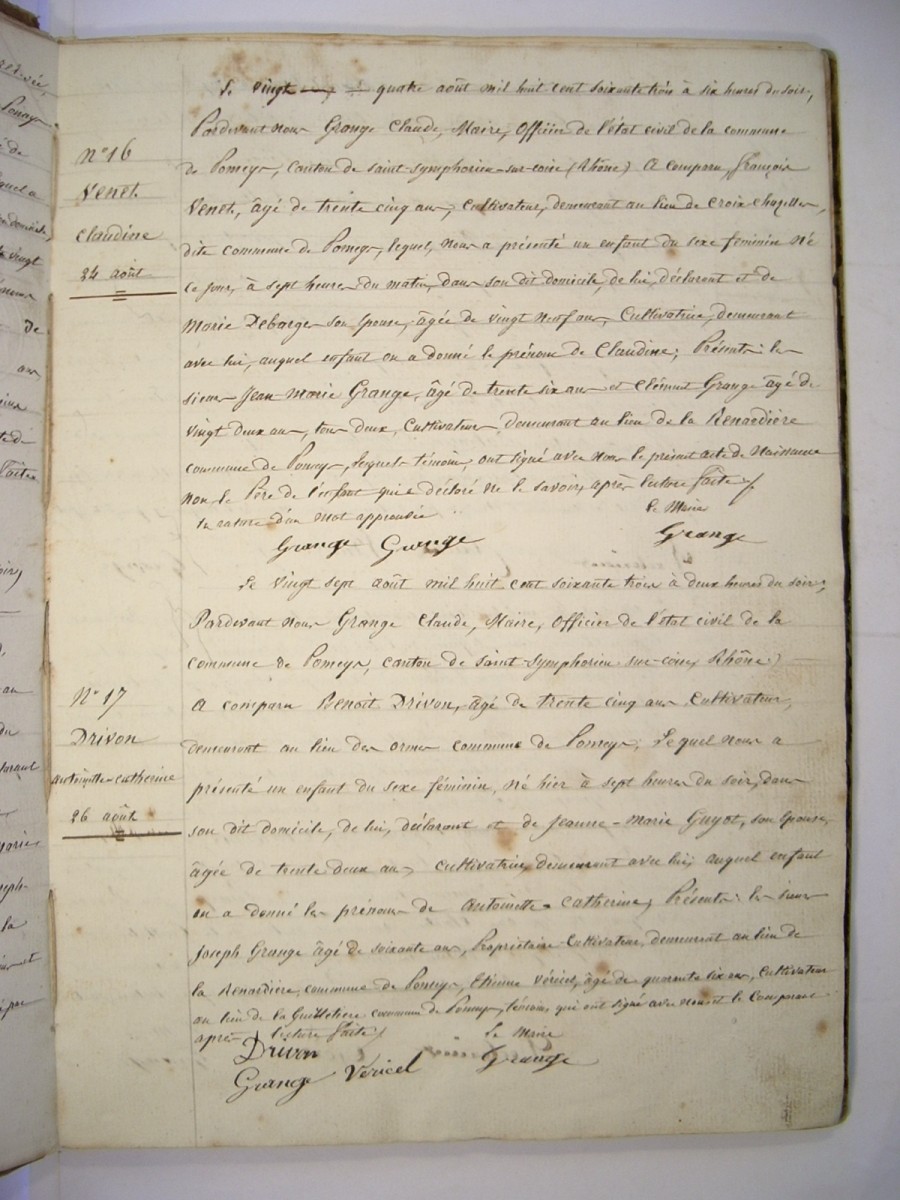 N° 16
Venet
Claudine
24 août
Le vingt quatre août mil huit cent soixante trois à six heures du soir,
Pardevant nous Grange Claude, Maire, Officier de l'état civil de la commune
de Pomeys, Canton de Saint-Symphorien-sur-coise (Rhône) A comparu françois
Venet, âgé de trente cinq ans, Cultivateur, demeurant au lieu de Croix Chazelles,
dite commune de Pomeys, lequel, nous a présenté un enfant du sexe féminin Né
Ce jour, à sept heures du matin, dans son dit domicile, de lui, déclarant et de
Marie Debarge son épouse, âgée de vingt neuf ans, Cultivatrice, demeurant
avec lui, auquel enfant on a donné le prénom de Claudine; Présents: les
sieurs Jean-Marie Grange, âgé de trente six ans et Clément Grange âgé de
vingt deux ans, tous deux, Cultivateurs, demeurant au lieu de la Renardière
commune de Pomeys, lesquels témoins, ont signé avec Nous le présent acte de Naissance
non le Père de l'enfant qui a déclaré ne le savoir, après lecture faite
la rature d'un mot approuvée
Le Maire
Grange Grange Grange
N° 17
Drivon
antoinette-catherine
26 août
Le vingt sept août mil huit cent soixante trois à deux heures du soir;
Pardevant nous Grange Claude, Maire, Officier de l'état civil de la
Commune de Pomeys, canton de Saint-Symphorien-sur-coise (Rhône)
A comparu Benoît Drivon, âgé de trente cinq ans Cultivateur,
demeurant au lieu des ormes commune de Pomeys; Lequel Nous a
présenté un enfant du sexe féminin, Né hier à sept heures du soir, dans
son dit domicile, de lui, déclarant et de Jeanne-Marie Guyot, son épouse,
âgée de trente deux ans cultivatrice, demeurant avec lui, auquel enfant
on a donné les prénoms de Antoinette-Catherine; Présents: les sieurs
Joseph Grange âgé de soixante ans, Propriétaire-Cultivateur, demeurant au lieu de
la Renardière, commune de Pomeys, Etienne Véricel, âgé de quarante six ans, Cultivateur
au lieu de la Guillotière commune de Pomeys, témoins, qui ont signé avec nous et le Comparant
après lecture faite
Le Maire
Drivon
Grange Véricel Grange